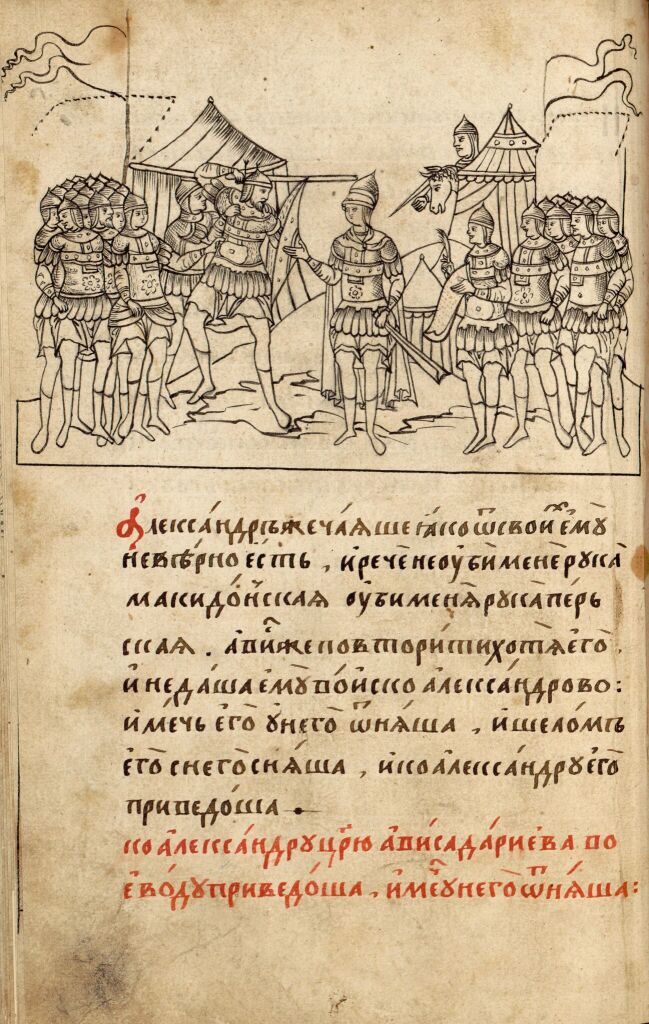 Алеѯа́ндръ же ча́яше я́ко ѿ свои́хъ ємꙋ̀
невѣ́рно є́сть , и҆ рече̑ не ᲂу҆би̑ мене̑ рꙋка̀
македо́нская ᲂу҆би̑ менѧ̀ рꙋка̀ перь
ская . а҆ви́же повтори́ти хотѧ̀ є҆го̀ ,
и҆ не да́ша є҆мꙋ̀ во́иско а҆леѯа́ндрово :
и҆ ме́чь є҆го̀ ᲂу҆ него̀ ѿнѧ́ша , и҆ шело́мъ
є҆го̀ с него̀ снѧ́ша , и҆ ко а҆леѯа́ндрꙋ є҆го̀
приведо́ша .
ко а҆леѯа́ндрꙋ цр҃ю̀ а҆виса да́риева во
ево́дꙋ приведо́ша , и҆ ме́чь ᲂу҆ него̀ ѿнѧ́ша :